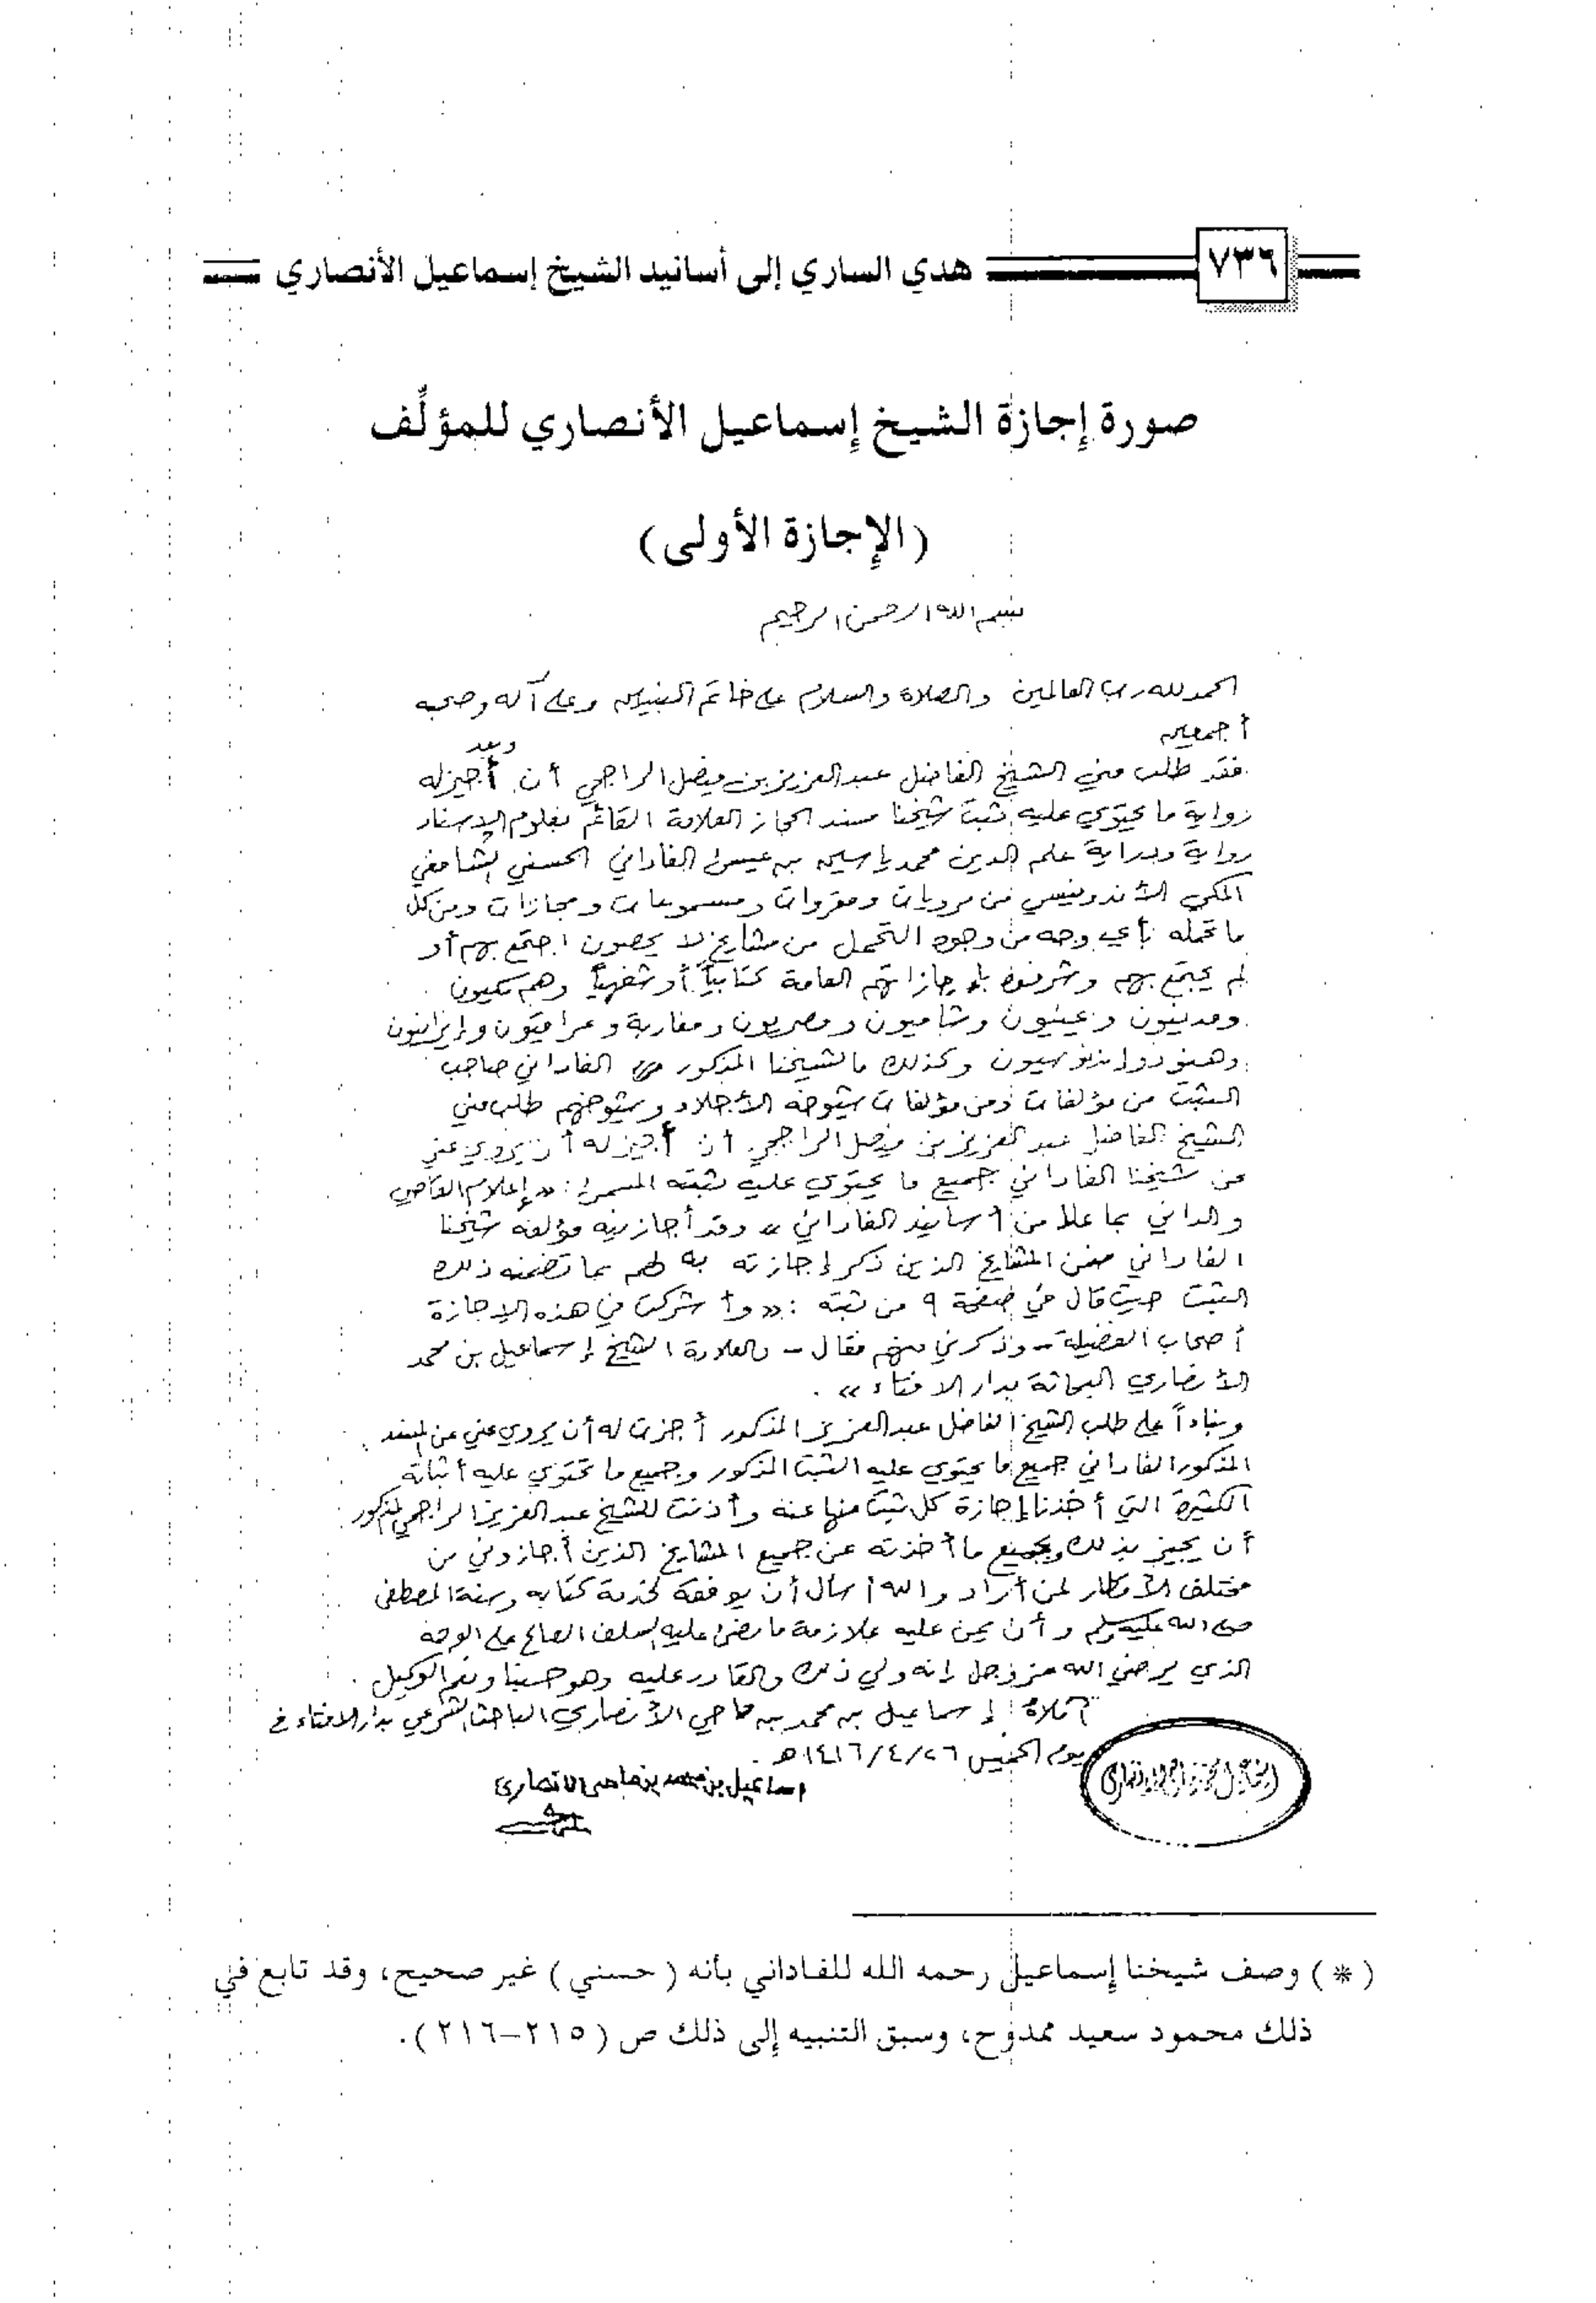 ٧٣٦
هدي الساري إلى أسانيد الشيخ إسماعيل الأنصاري
صورة إجازة الشيخ إسماعيل الأنصاري للمؤلِّف
(الإجازة الأولى)
بسم الله الرحمن الرحيم
الحمد لله رب العالمين والصلاة والسلام على خاتم النبيين وعلى آله وصحبه
أجمعين
وبعد
فقد طلب مني الشيخ الفاضل عبدالعزيز بن فيصل الراجحي أن أجيز له
رواية ما يحتوي عليه ثبت شيخنا مسند الحجاز العلامة القائم بعلوم الإسناد
رواية ودراية علم الدين محمد ياسين بن عيسى الفاداني الحسني الشافعي
المكي الأندونيسي من مرويات ومقروات ومسموعات ومجازات ومن كل
ما تحمله بأي وجه من وجوه التحمل من مشايخ لا يحصون اجتمع بهم أو
لم يجتمع بهم وشرفوه بإجازاتهم العامة كتابياً أو شفهياً وهم مكيون
ومدنيون ويمنيون وشاميون ومصريون ومغاربة وعراقيون وإيرانيون
وهنود وإندونيسيون وكذلك ما لشيخنا المذكور الفاداني صاحب
الثبت من مؤلفات ومن مؤلفات شيوخه الأجلاء وشيوخهم طلب مني
الشيخ الفاضل عبد العزيز بن فيصل الراجحي أن أجيز له أن يروي عني
عن شيخنا الفاداني جميع ما يحتوي عليه ثبته المسمى: «إعلام القاصي
والداني بما علا من أسانيد الفاداني» وقد أجازنيه مؤلفه شيخنا
الفاداني ضمن المشايخ الذين ذكر إجازته به لهم بما تضمنه ذلك
الثبت حيث قال في صفحة ٩ من ثبته: «وأشركت في هذه الإجازة
أصحاب الفضيلة – وذكرني منهم فقال – والعلامة الشيخ إسماعيل بن محمد
الأنصاري البحاثة بدار الافتاء».
وبناءاً على طلب الشيخ الفاضل عبدالعزيز المذكور أجزت له أن يروي عني عن المسند
المذكور الفاداني جميع ما يحتوي عليه الثبت المذكور وجميع ما تحتوي عليه أثباته
الكثيرة التي أخذنا إجازة كل ثبت منها عنه وأذنت للشيخ عبدالعزيز الراجحي المذكور
أن يجيز بذلك وبجميع ما أخذته عن جميع المشايخ الذين أجازوني من
مختلف الأقطار لمن أراد والله أسأل أن يوفقه لخدمة كتابه وسنة المصطفى
صلى الله عليه وسلم وأن يمن عليه بملازمة ما مضى عليه السلف الصالح على الوجه
الذي يرضي الله عز وجل إنه ولي ذلك والقادر عليه وهو حسبنا ونعم الوكيل.
أملاه: إسماعيل بن محمد بن ماحي الأنصاري الباحث الشرعي بدار الافتاء في
يوم الخميس ١٤١٦/٤/٢٦هـ.
اسماعيل بن محمد بن ماحى الانصارى
(*) وصف شيخنا إسماعيل رحمه الله للفاداني بأنه (حسني) غير صحيح، وقد تابع في
ذلك محمود سعيد ممدوح، وسبق التنبيه إلى ذلك ص (٢١٥–٢١٦).